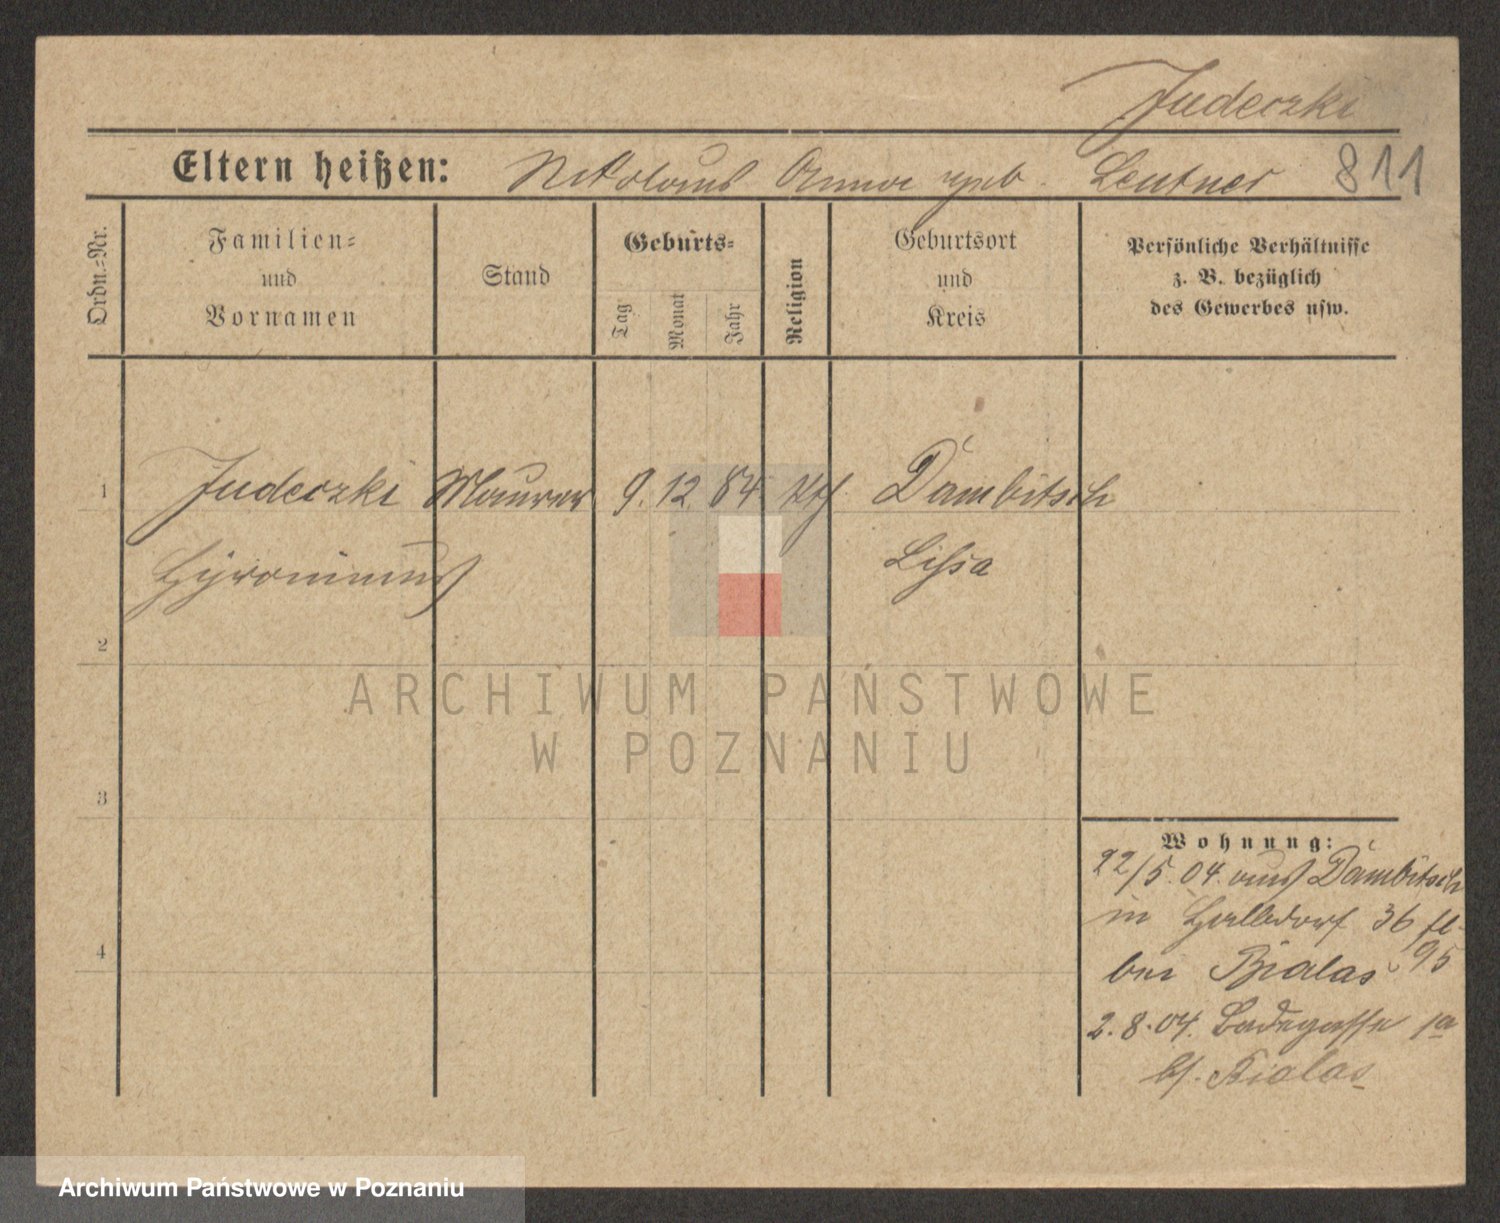 Judeczki
Eltern heißen: Nikolaus Anna geb. Leutner 811
Ordn.-Nr.
Familien-
und
Vornamen
Stand
Geburts-
Tag
Monat
Jahr
Religion
Geburtsort
und
Kreis
Persönliche Verhältnisse
z. B. bezüglich
des Gewerbes usw.
1 Judeczki Maurer 9. 12. 84 kth. Dambitsch
Hyronimus Lissa
2
3
4
ARCHIWUM PAŃSTWOWE
W POZNANIU
Wohnung:
22/5. 04. aus Dambitsch
in Halbdorf 36
bei Bialas 95
2. 8. 04. Badegasse 1a
b/. Bialas
Archiwum Państwowe w Poznaniu